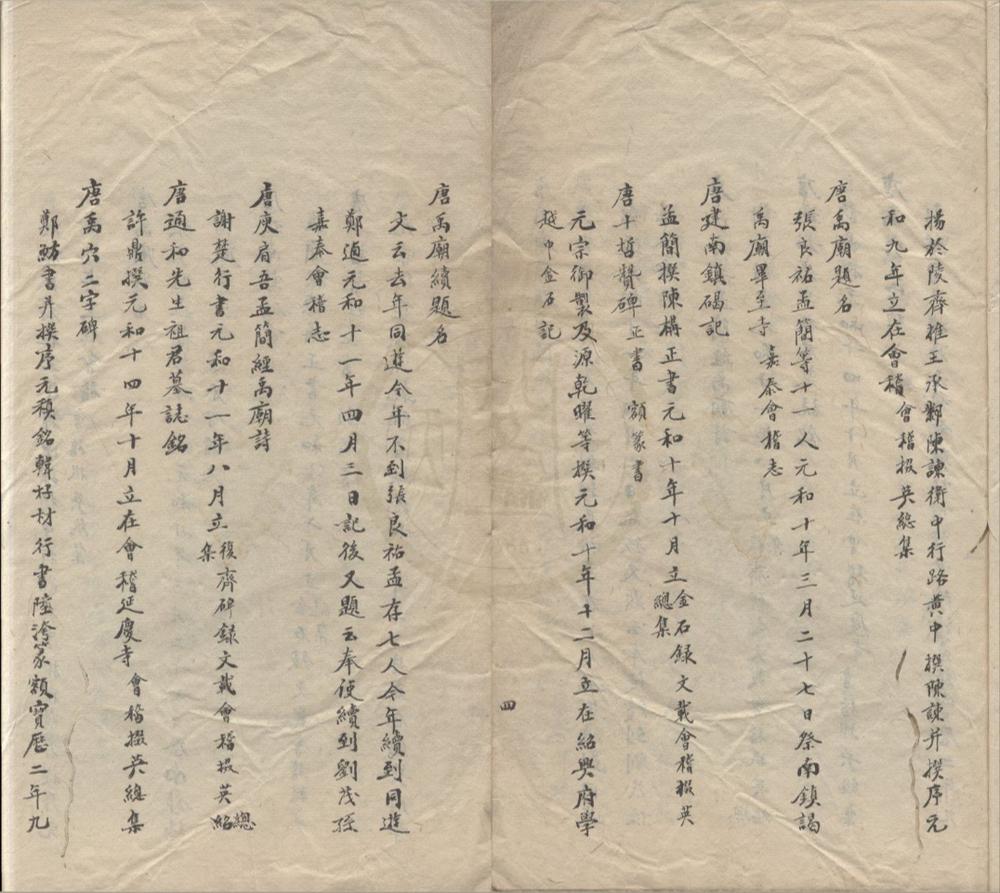 楊於陵齊推王承鄴陳諫衛中行路黄中撰陳諫并撰序元
和九年立在會稽會稽掇英總集
唐禹廟題名
張良祐孟簡等十一人元和十年三月二十七日祭南鎮謁
禹廟畢至寺嘉泰會稽志
唐建南鎮碣記
孟簡撰陳構正書元和十年十月立金石録文載會稽掇英總集
唐十哲贊碑正書額篆書
元宗御製及源乾曜等撰元和十年十二月立在紹興府學
越中金石記
四
唐禹廟續題名
文云去年同遊今年不到張良祐孟存七人今年續到同遊
鄭逈元和十一年四月三日記後又題云奉使續到劉茂孫
嘉泰會稽志
唐庾肩吾孟簡經禹廟詩
謝楚行書元和十一年八月立復齊碑録文載會稽掇英總集
唐逈和先生祖君墓誌銘
許鼎撰元和十四年十月立在會稽延慶寺會稽掇英總集
唐禹穴二字碑
鄭魴書丹撰序元稹銘韓杼材行書陸洿篆額寶厯二年九